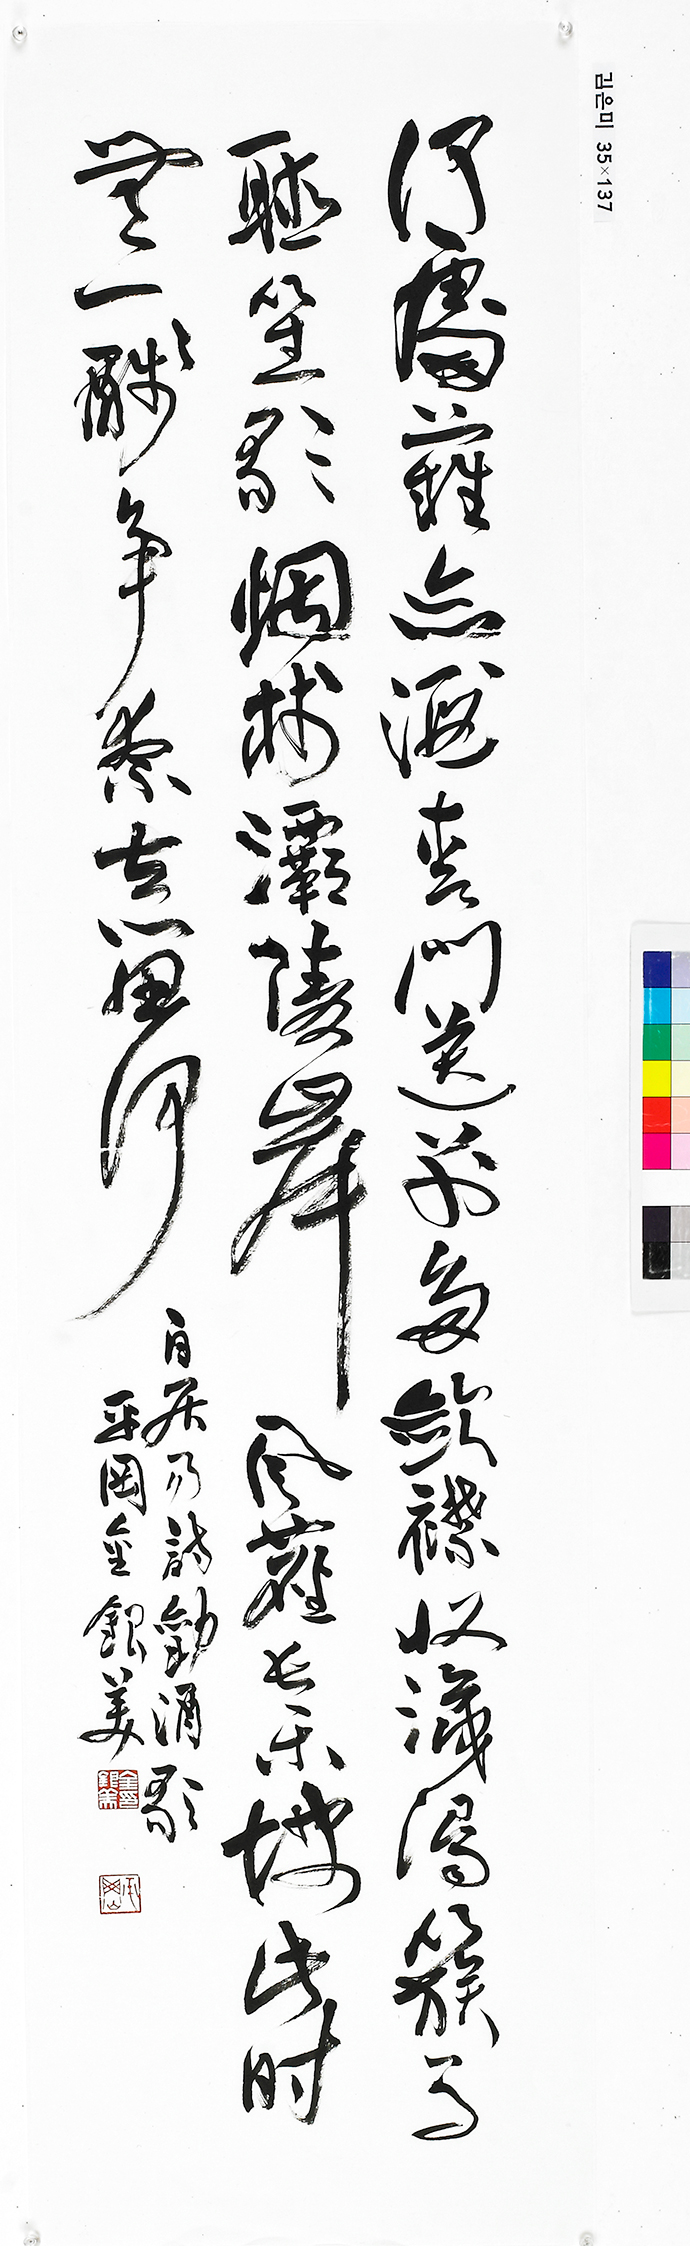 김은미 35×137
何處難忘酒青門送別多斂襟收涕淚簇馬
聽笙歌烟樹灞陵岸風塵長樂坡此時
無一醆爭奈去留何
白居易詩勸酒歌
平岡金銀美